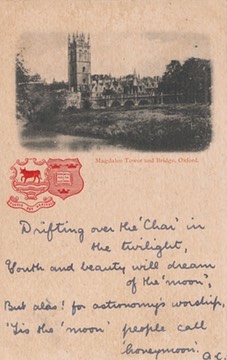 Magdalen Tower and Bridge, Oxford.
Drifting over the 'Chai' in
the twilight,
Youth and beauty will dream
of the "moon",
But alas! for astronomy's worship,
'Tis the 'moon' people call
'honeymoon'.
A.C.